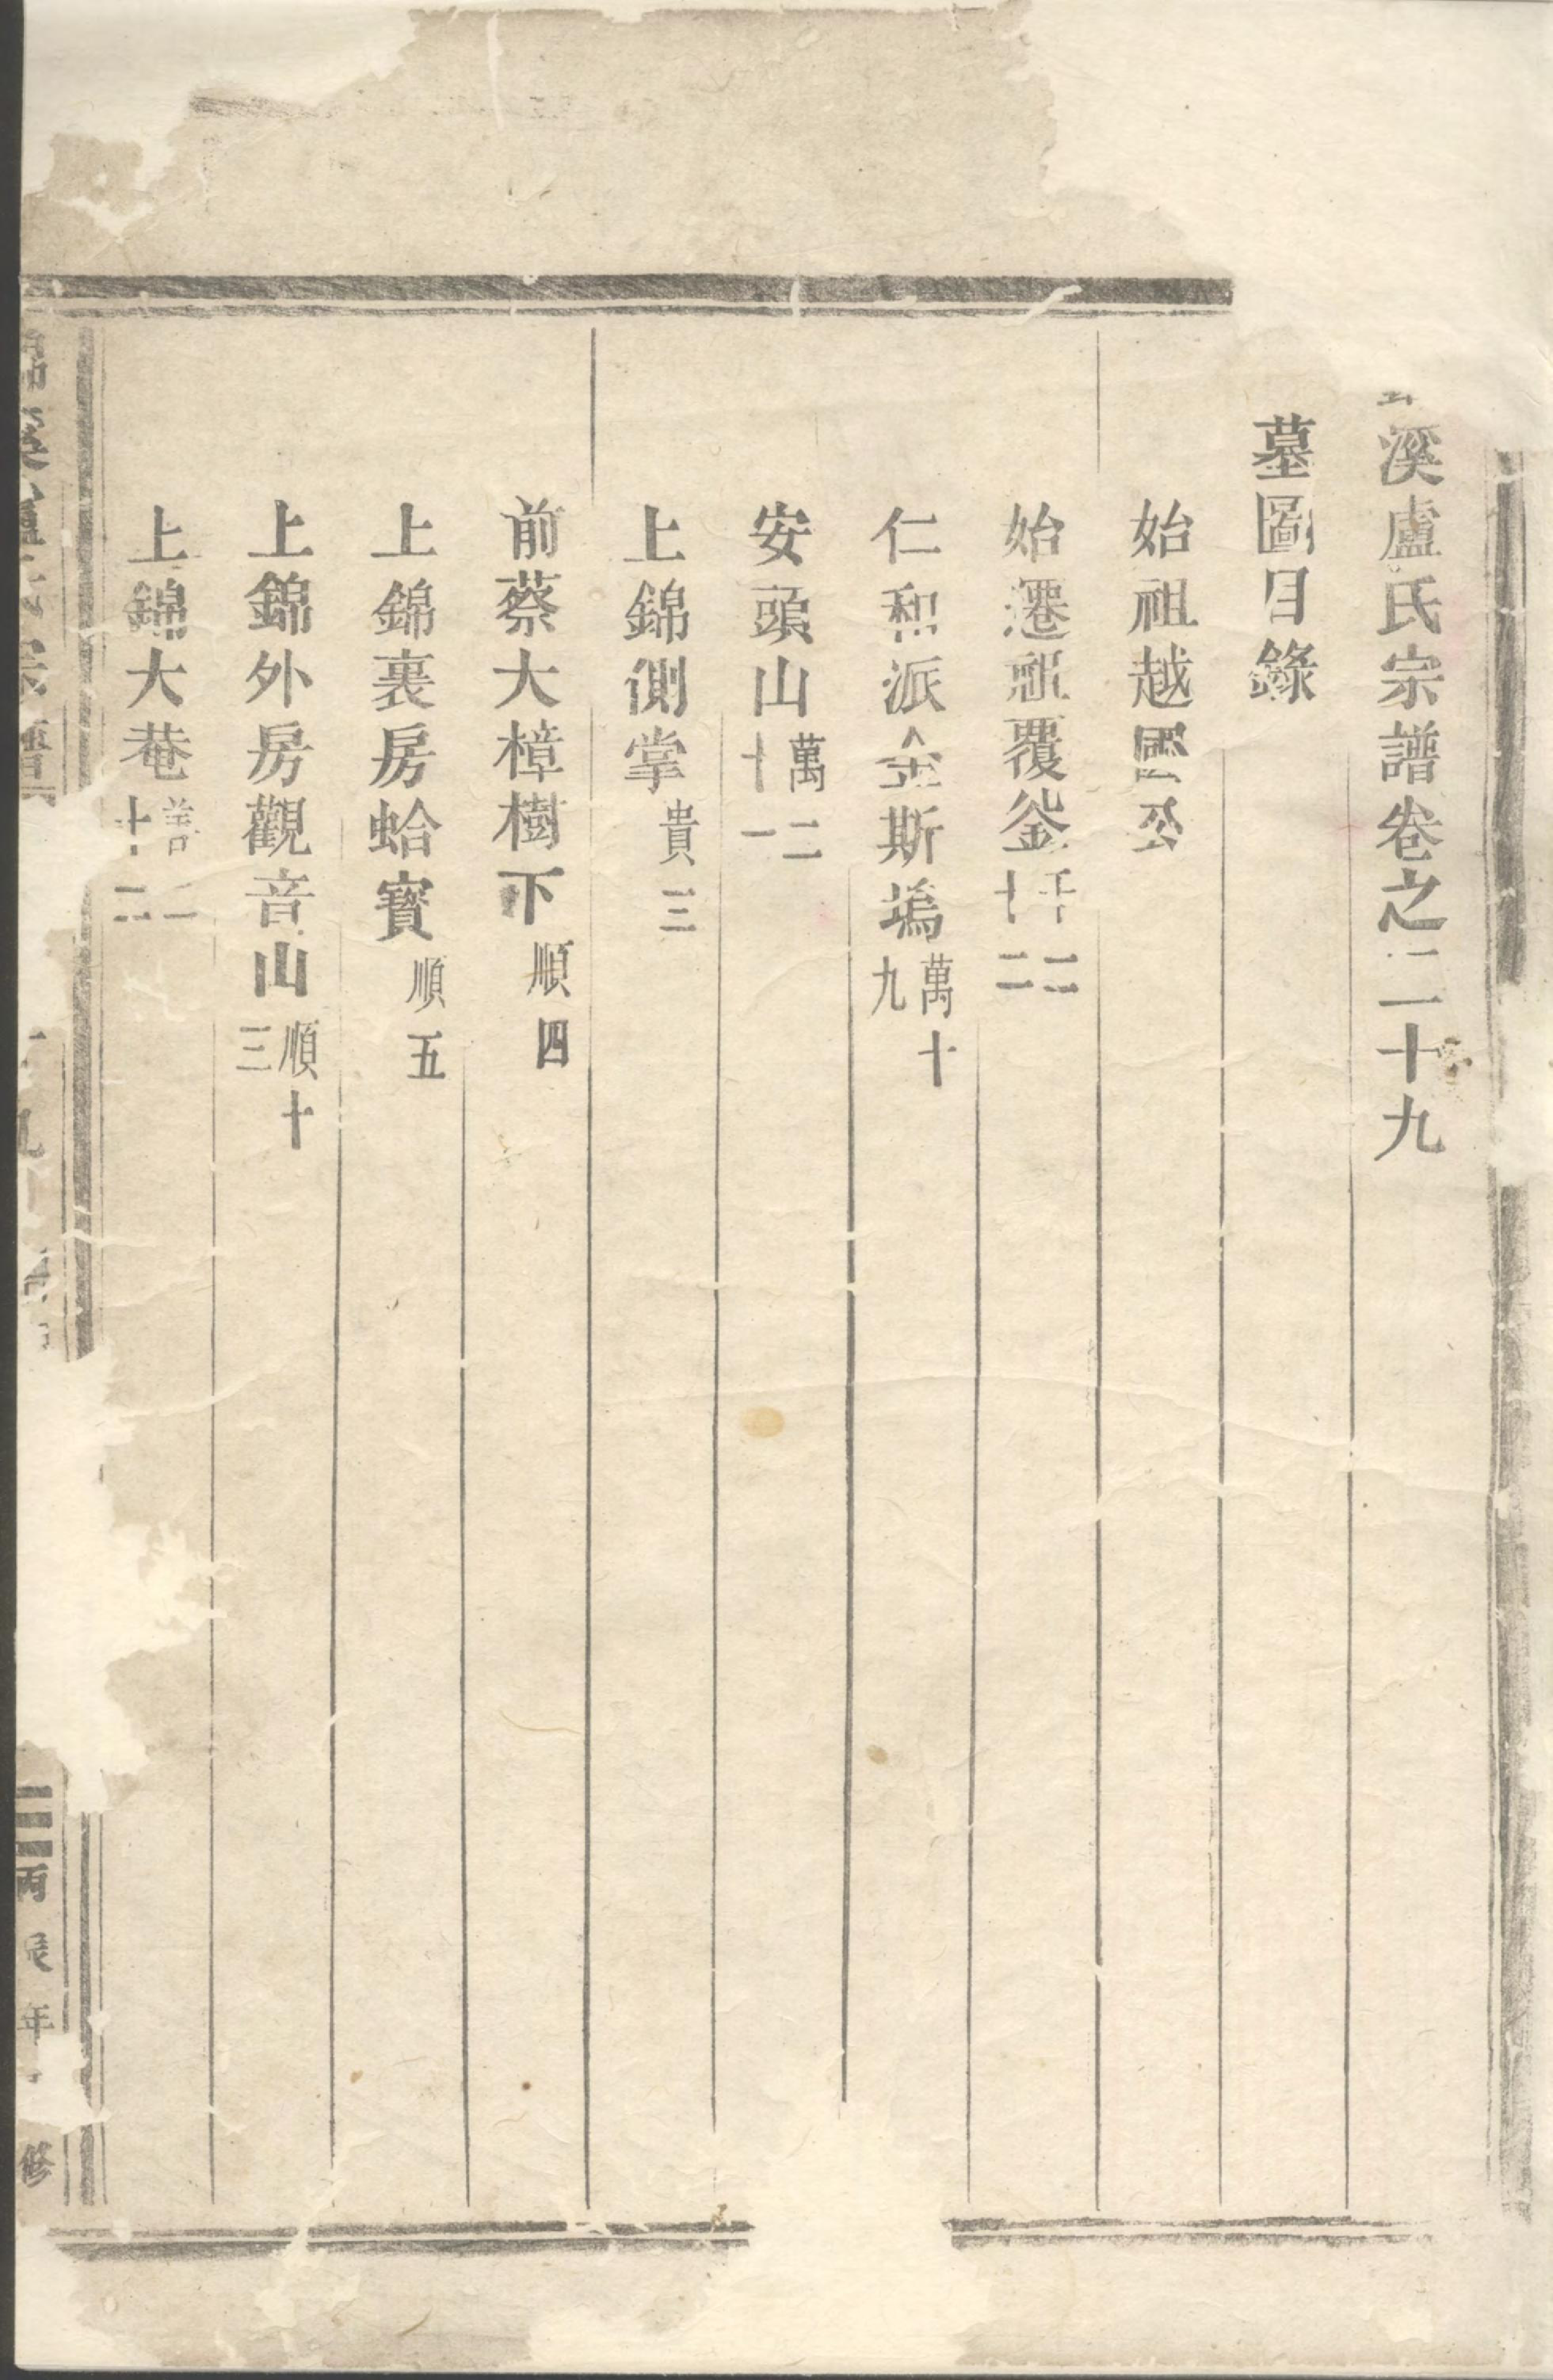 溪盧氏宗譜卷之二十九
墓圖目錄
始祖越國公
始遷祖覆釜千二十二
仁和派金斯塢萬十九
安頭山萬二十一
上錦側掌貴三
前蔡大樟樹下順四
上錦裏房蛤寳順五
上錦外房觀音山順十三
上錦大巷善二十二
丙辰年修